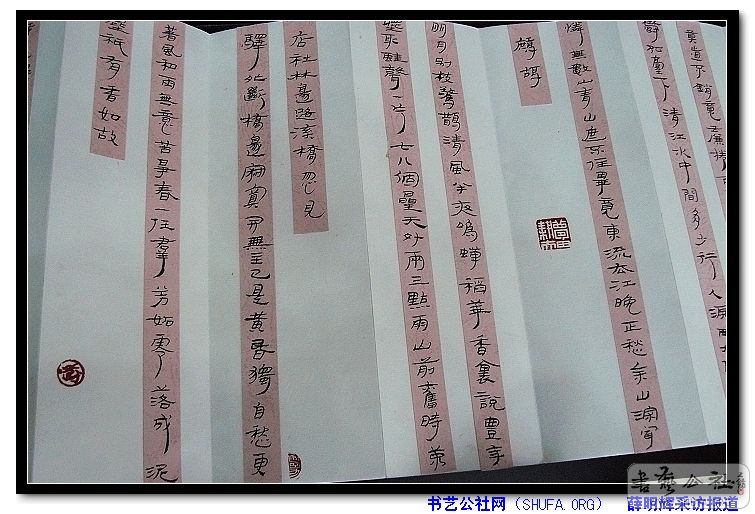 莫道不銷魂簾捲
鬱孤臺下清江水中間多少行人淚西北
憐無數山青山遮不住畢竟東流去江晚正愁余山深聞
鷓鴣
明月別枝驚鵲清風半夜鳴蟬稻華香裏說豐年
聽取蛙聲一片七八個星天外兩三點雨山前舊時茅
店社林邊路溪橋忽見
驛外斷橋邊寂寞開無主已是黃昏獨自愁更
著風和雨無意苦爭春一任羣芳妒零落成泥
塵祇有香如故
书艺公社
书艺公社网（SHUFA.ORG） 薛明辉采访报道